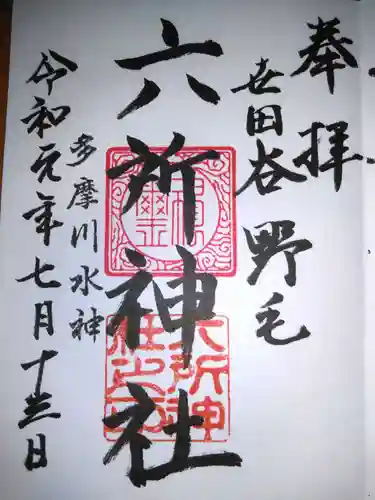 奉拝
世田谷野毛
六所神社
多摩川水神
令和元年七月十三日
六所神社之印